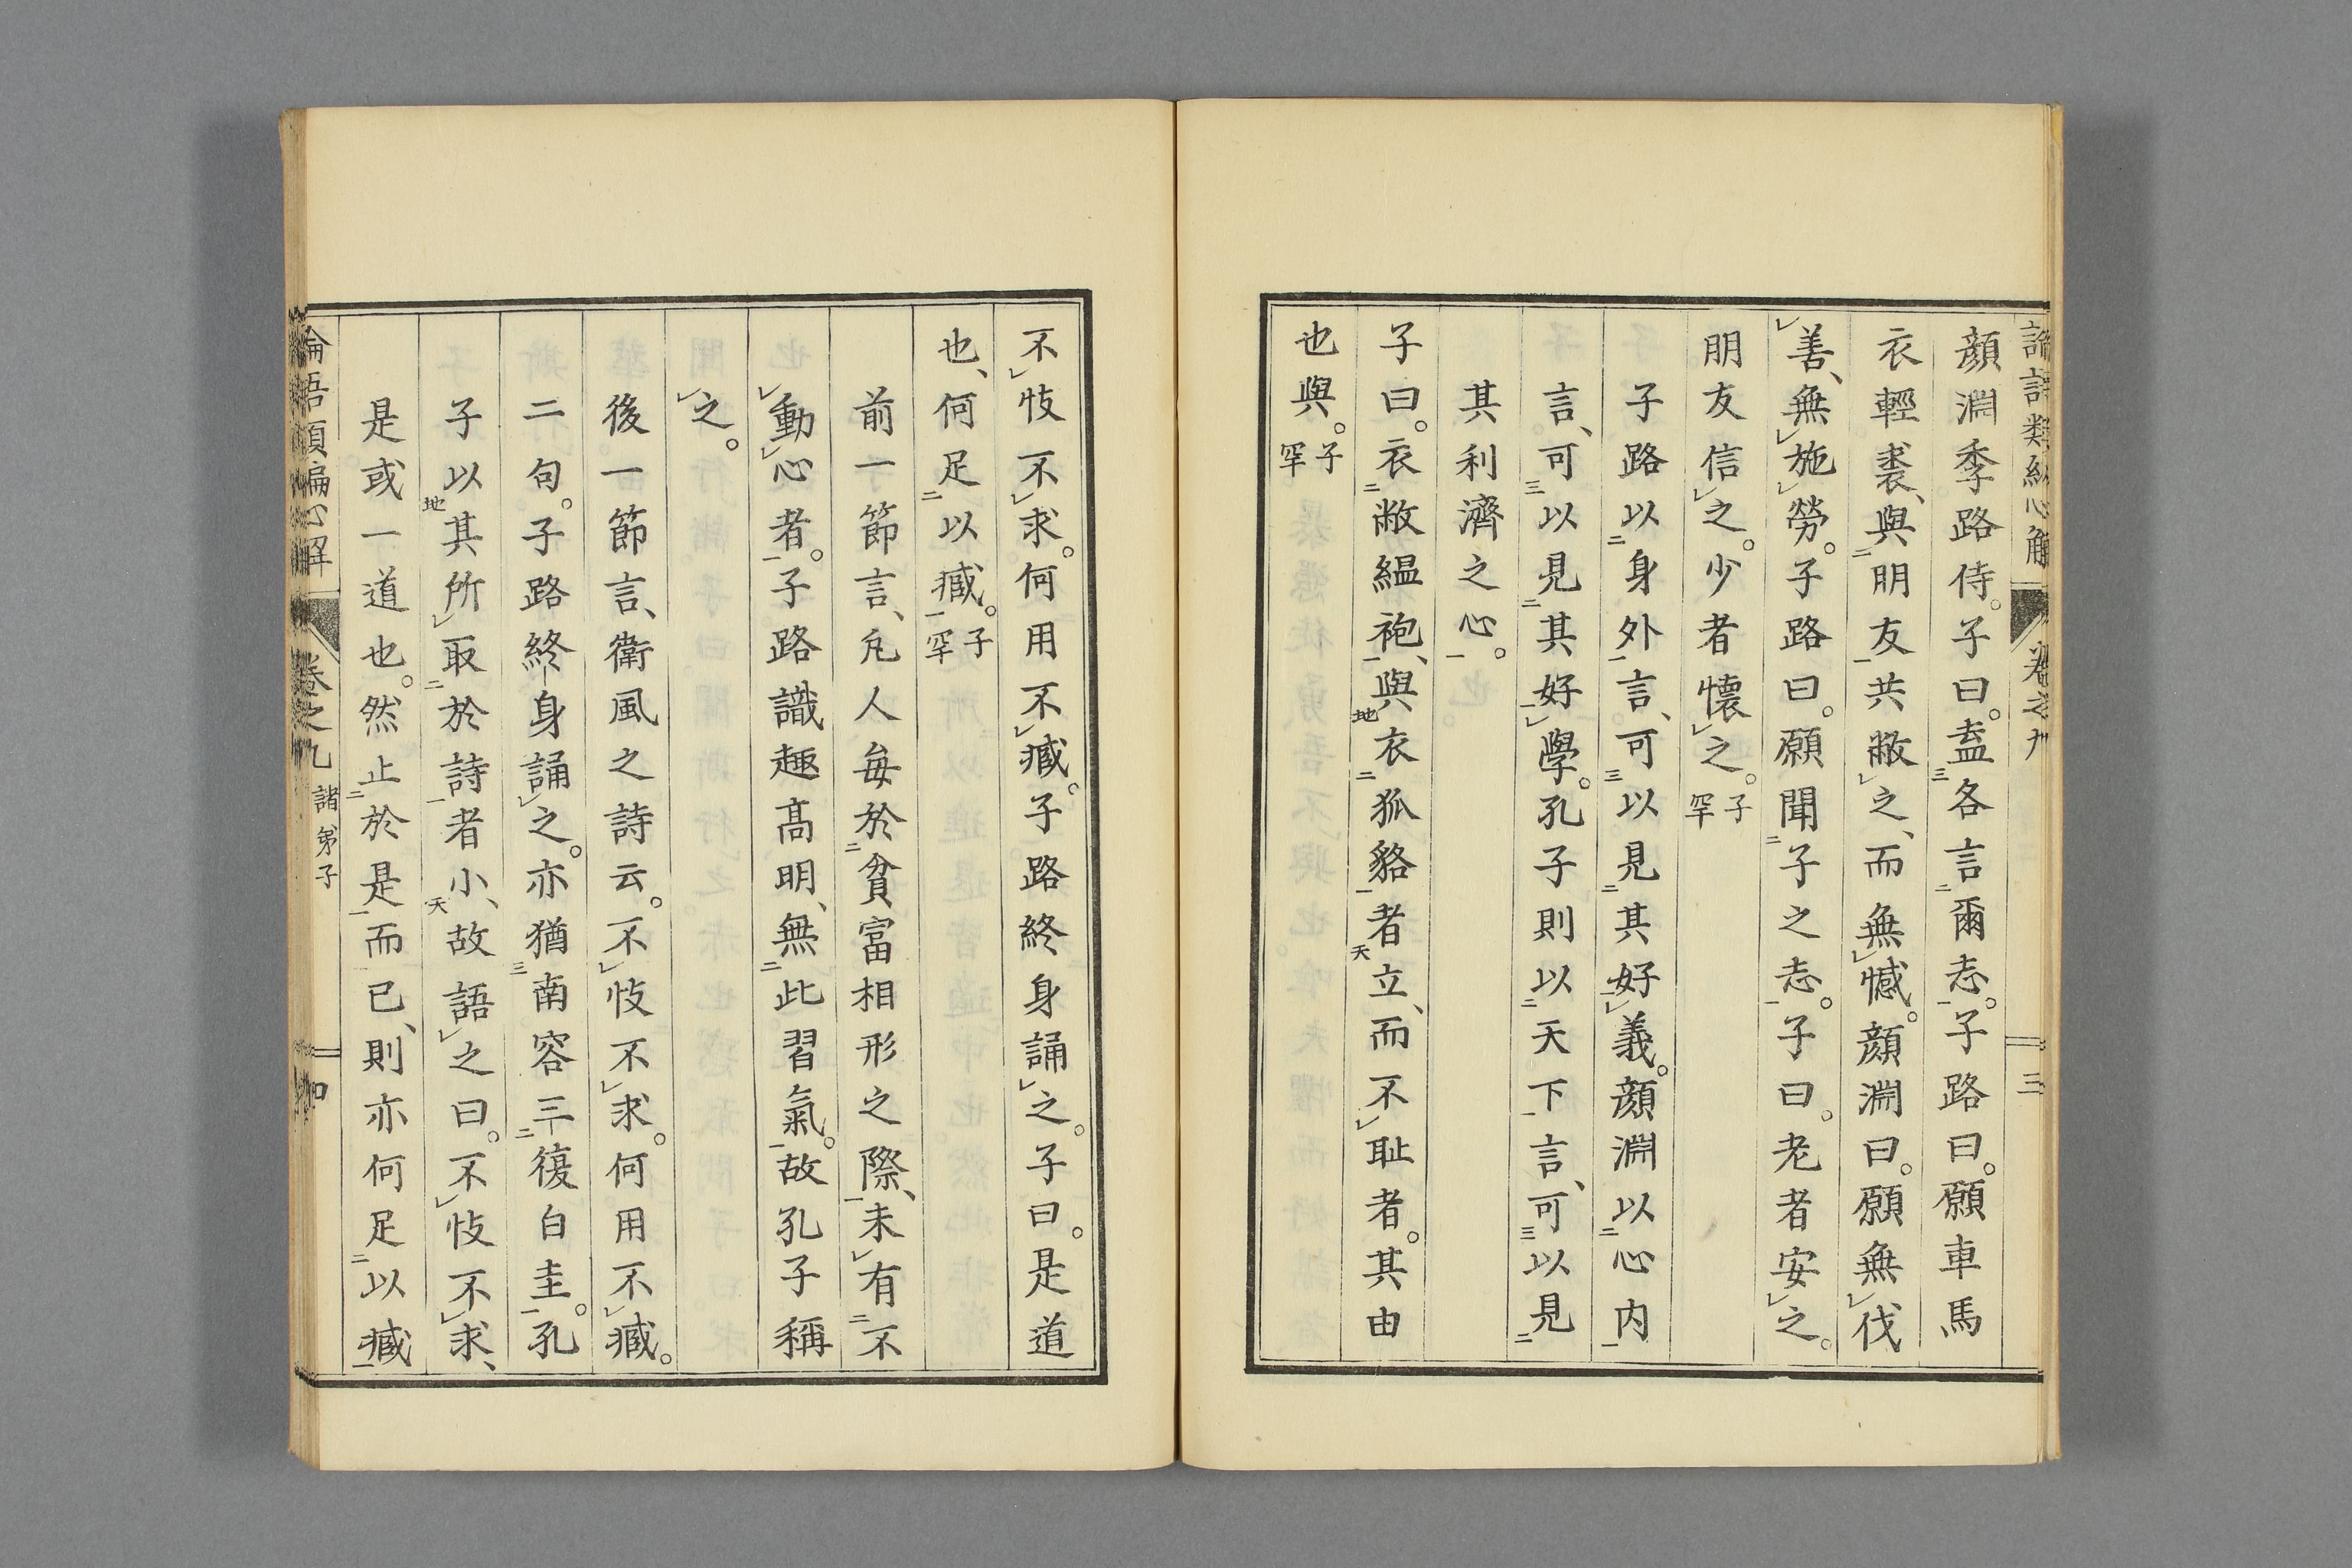 顏淵季路侍。子曰。盍各言爾志。子路曰。願車馬
衣輕裘、與朋友共敝之、而無憾。顏淵曰。願無伐
善、無施勞。子路曰。願聞子之志。子曰。老者安之。
朋友信之。少者懷之。子罕
子路以身外言、可以見其好義。顏淵以心內
言、可以見其好學。孔子則以天下言、可以見
其利濟之心。
子曰。衣敝縕袍、與衣狐貉者立、而不恥者。其由
也與。子罕
不忮不求。何用不臧。子路終身誦之。子曰。是道
也、何足以臧。子罕
前一節言、凡人每於貧富相形之際、未有不
動心者。子路識趣高明、無此習氣。故孔子稱
之。
後一節言、衛風之詩云。不忮不求。何用不臧。
二句。子路終身誦之。亦猶南容三復白圭。孔
子以其所取於詩者小、故語之曰。不忮不求、
是或一道也。然止於是而已、則亦何足以臧
卷之九 諸弟子